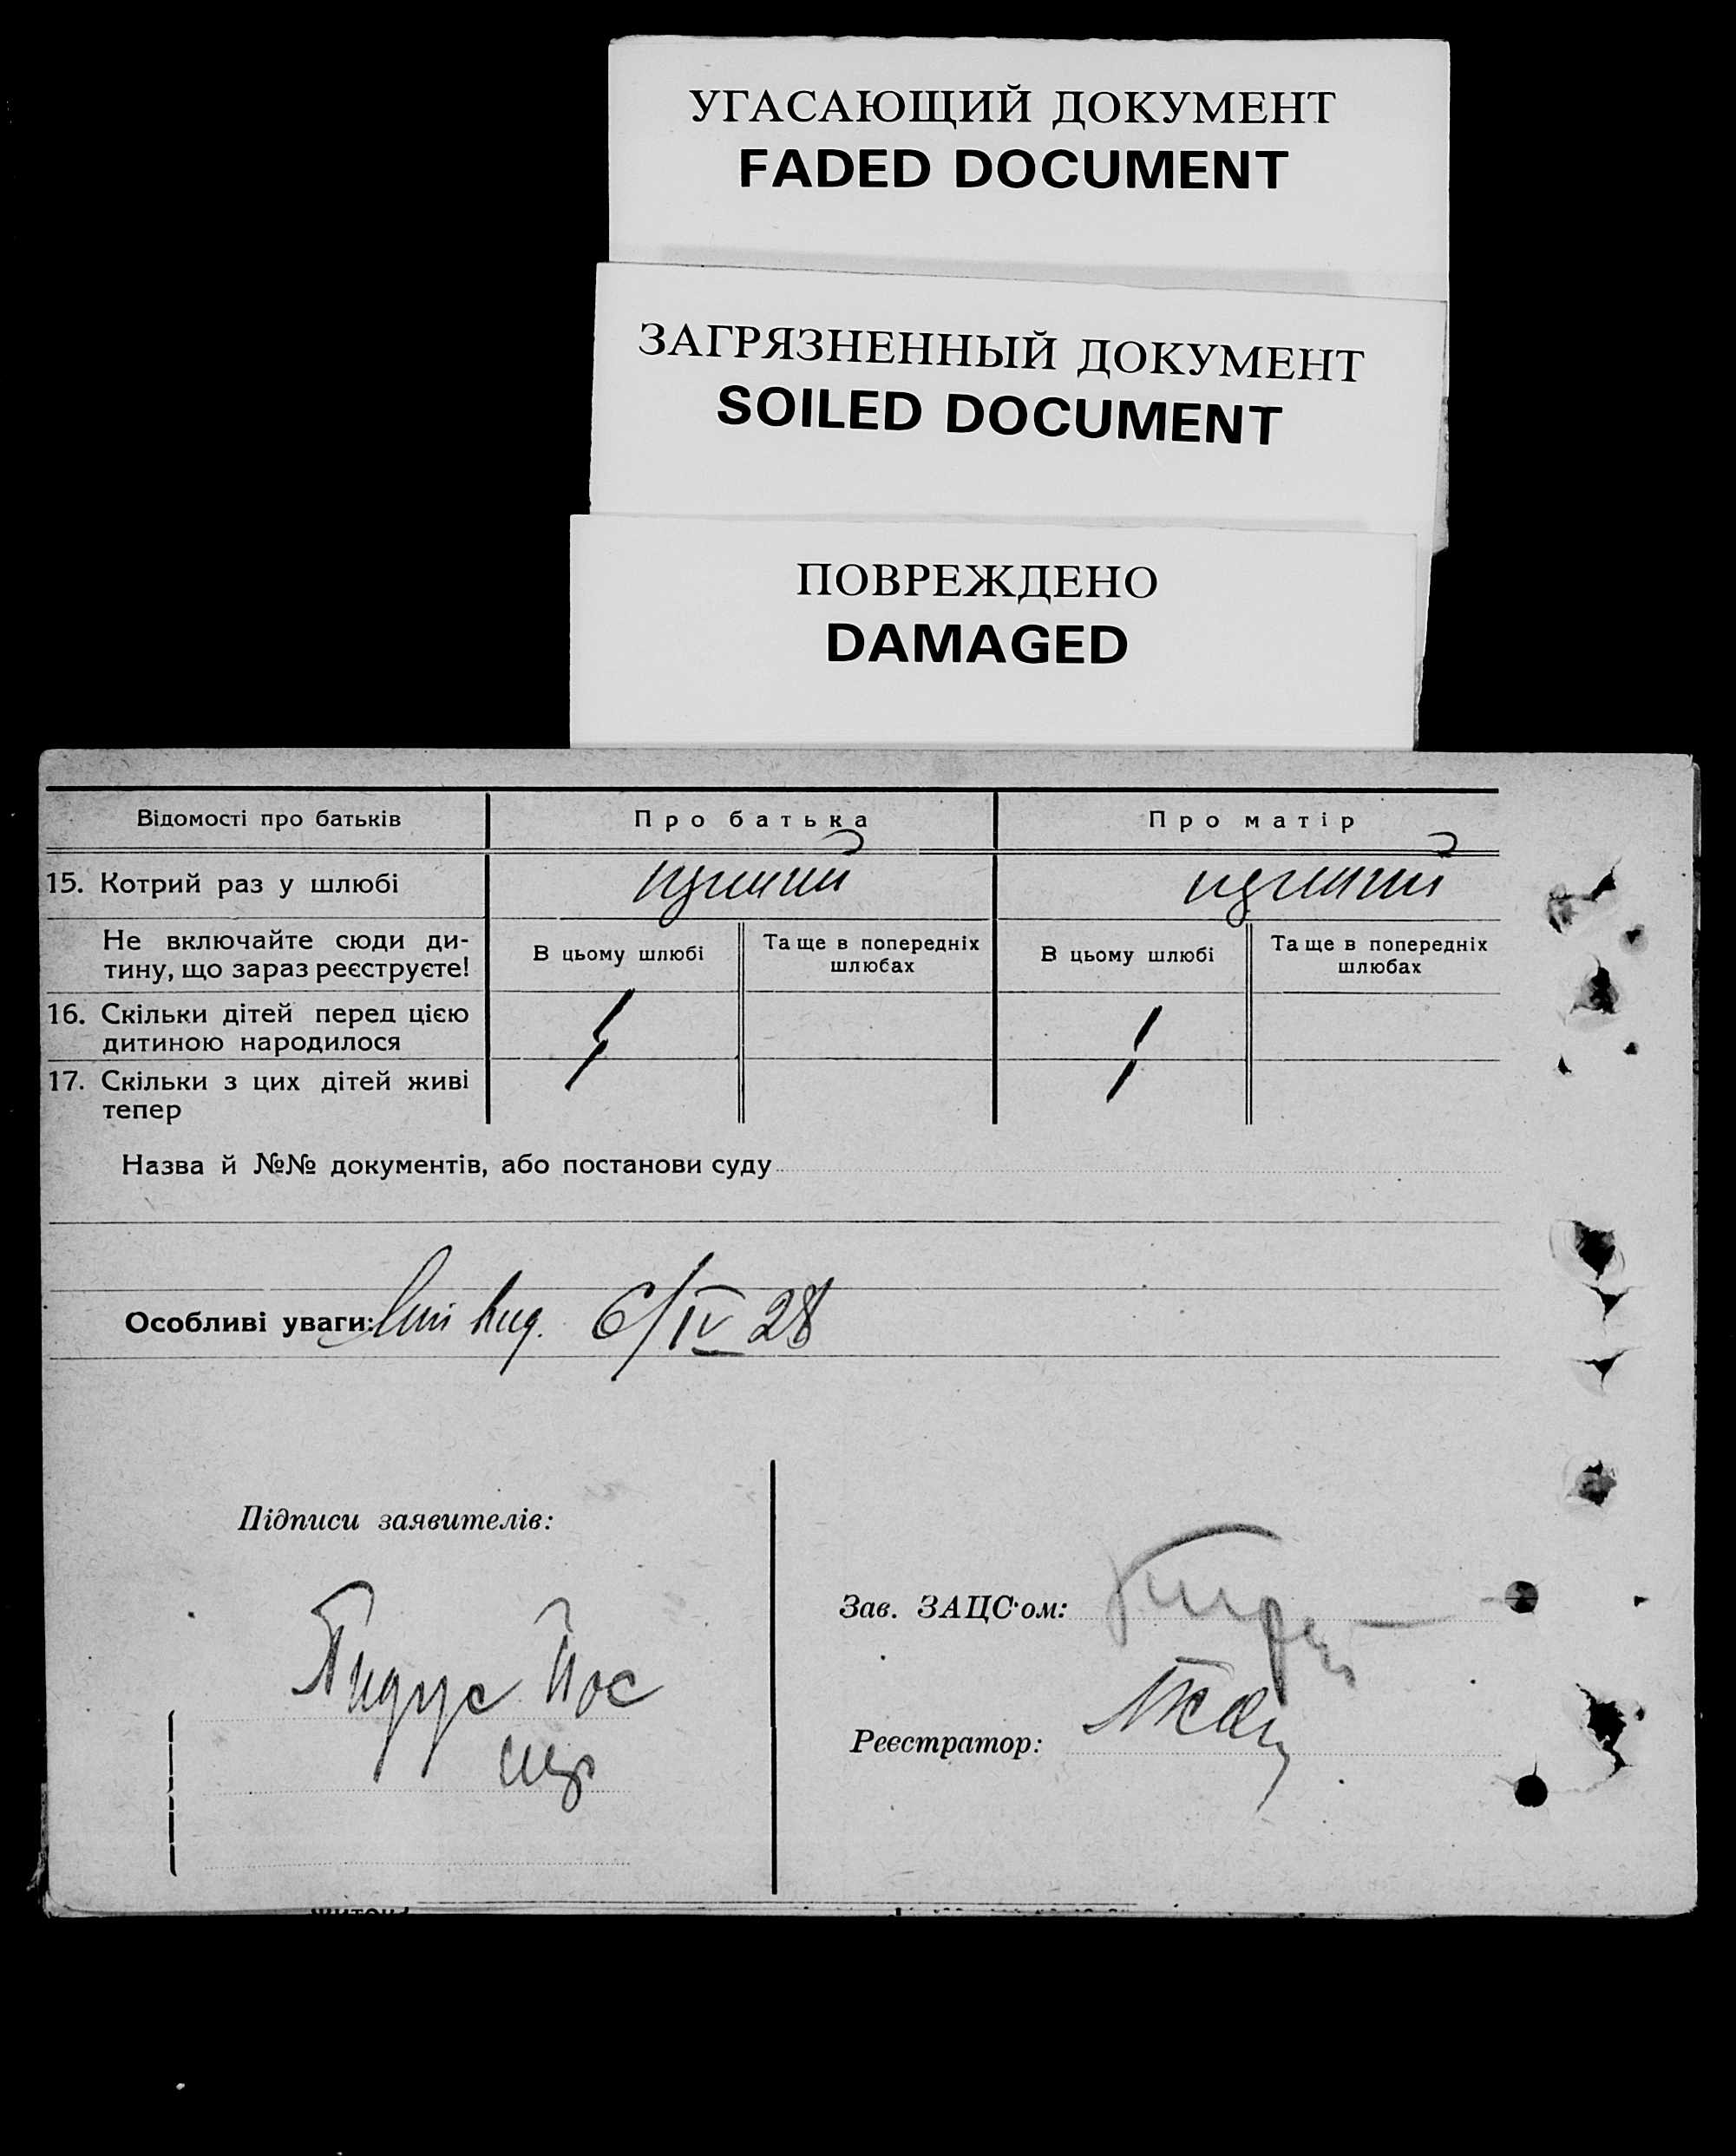 УГАСАЮЩИЙ ДОКУМЕНТ
FADED DOCUMENT
ЗАГРЯЗНЕННЫЙ ДОКУМЕНТ
SOILED DOCUMENT
ПОВРЕЖДЕНО
DAMAGED
Відомості про батьків
Про батька
Про матір
15. Котрий раз у шлюбі
Не включайте сюди ди-
тину, що зараз реєструєте!
В цьому шлюбі
Та ще в попередніх
шлюбах
В цьому шлюбі
Та ще в попередніх
шлюбах
16. Скільки дітей перед цією
дитиною народилося
17. Скільки з цих дітей живі
тепер
Назва й №№ документів, або постанови суду
Особливі уваги: 6/IV 28
Підписи заявителів:
Зав. ЗАЦС'ом:
Реєстратор: